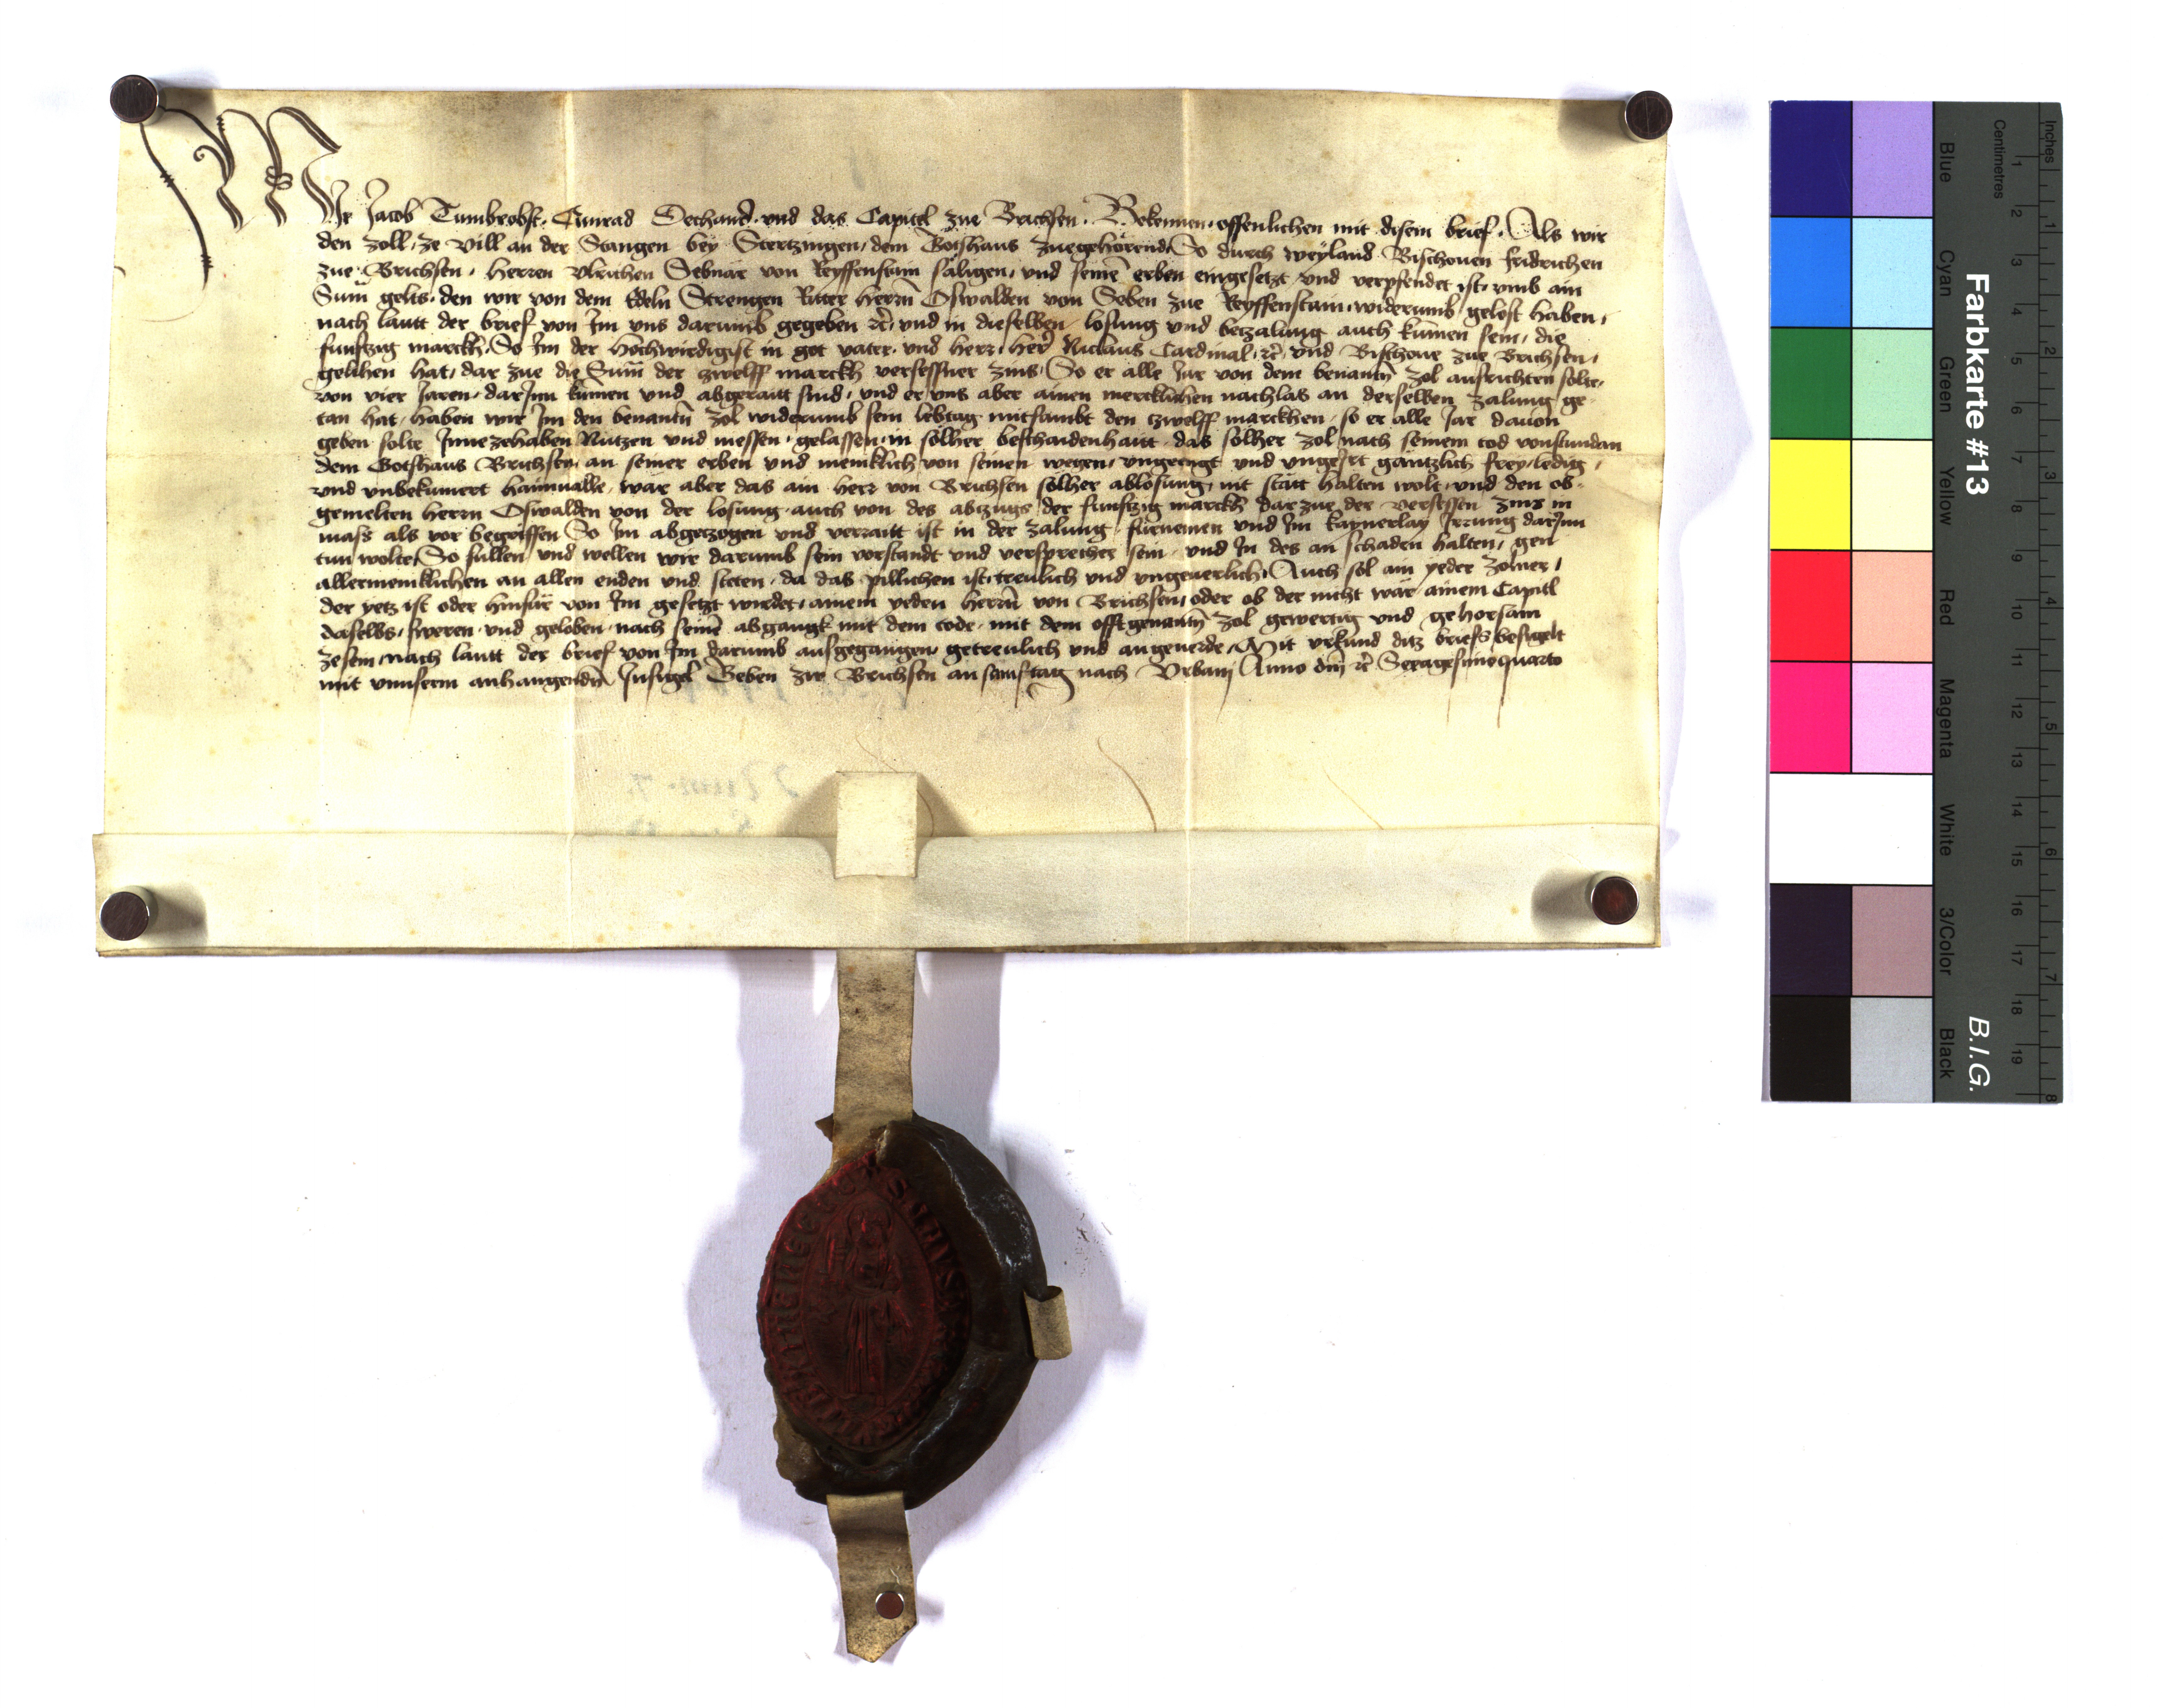 Wir Jacob Tumbrobst, Cunrad Dechand und das Capitel zue Brichsen. Bekennen offenlichen mit disem brief. Als wir
den zoll, ze Vill an der Stangen bey Stertzingen, dem Gotshaus zuegehörend. So durch weyland Bischouen Fridrichen
zue Brichsen, herren Vlrichen Sebnär von Reyffenstain säligen, und seinē erben eingesetzt und verpfendet ist, vmb ain
Sum̄ gelts, den wir von dem Edeln Strengen Riter herrn̄ Oswalden von Seben zue Reyffenstain, widerumb gelöst haben,
nach lautt der brief von Im vns darumb gegeben ꝛc̄, und in dieselben losung und betzalung auch kūmen sein, die
funfzig marckh, So Im der Hochwirdigist in got vater und herr, her Niclaus Cardinal, ꝛc̄, und Bischoue zue Brichsen,
gelihen hat, dar zue die Sum̄ der zwelff marckh versessner zins, So er alle Jar von dem benantn̄ zol ausrichten solte,
von vier Jaren, darJnn kūmen und abgeraitt sind, und er vns aber ainen mercklichen nachlas an derselben zalung ge-
tan hat, haben wir Im den benantn̄ zol widerumb sein lebtag mitsambt den zwelff marckhen, so er alle Jar dauon
geben solte Innezehaben Nutzen und niessen, gelassen, in solher beschaidenhaitt, das solher zol nach seinem tod vonstundan
dem Gotshaus Brichsen, an seiner erben und meniklich von seinen wegen, vngeengt und vngeJrt gäntzlich frey, ledig,
und vnbekūmert haimualle, wär aber das ain herr von Brichsen solher ablosung, nit stätt halten wolt, und den ob-
gemelten herrn Oswalden von der losung auch von des abzugs der funfzig marckh dar zue der versessen zins in
mass als vor begriffen So Im abgezogen und verraitt ist in der zalung, fürnemen und Im kaynerlay Jrrung darJnn
tun wolte, So sullen und wellen wir darumb sein vorstandt und versprecher sein, und In des an schaden halten, gen
allermeniklichen an allen enden und steten, da das pillichen ist, treulich und vngeuerlich. Auch sol ain yeder zolner,
der yetz ist oder hinfür von Im gesetzt wirdet, ainem yeden herrn̄ von Brichsen, oder ob der nicht wär ainem Capitl
daselbs, sweren und geloben, nach seinē abgangk mit dem tode, mit dem offtgenantn̄ zol gewertig und gehorsam
zesein, nach lautt der brief von Im darumb ausgegangen, getreulich und angeuerde, Mit vrkund ditz briefs besigelt
mit vnnserm anhangendn̄ Insigel Geben zw Brichsen an samstag nach Vrbani Anno dn̄i ꝛc̄ Sexagesimoquarto
Farbkarte #13
B.I.G.
Inches
Centimetres
1 2 3 4 5 6 7 8
1 2 3 4 5 6 7 8 9 10 11 12 13 14 15 16 17 18 19
Blue Cyan Green Yellow Red Magenta White 3/Color Black